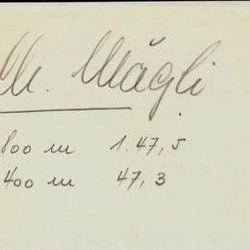 Ch. Mägli
800 m 1.47,5
400 m 47,3